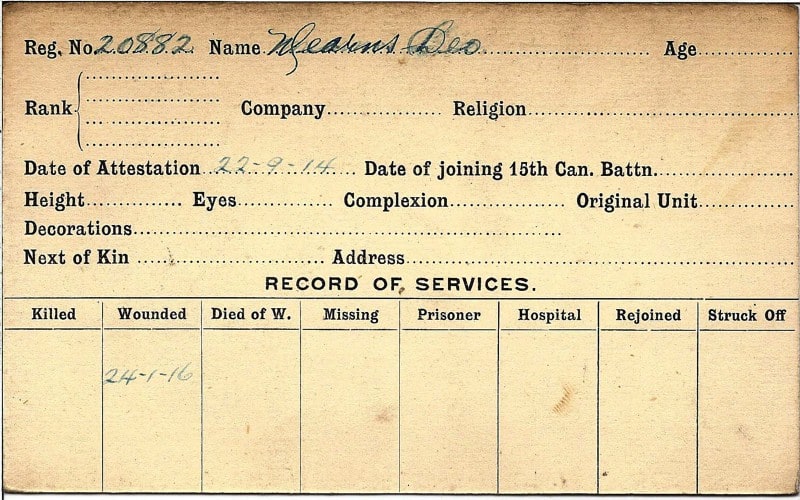 Reg. No. 20882 Name Mearns Geo Age
Rank Company Religion
Date of Attestation 22-9-14 Date of joining 15th Can. Battn.
Height Eyes Complexion Original Unit
Decorations
Next of Kin Address
RECORD OF SERVICES.
Killed Wounded Died of W. Missing Prisoner Hospital Rejoined Struck Off
24-1-16